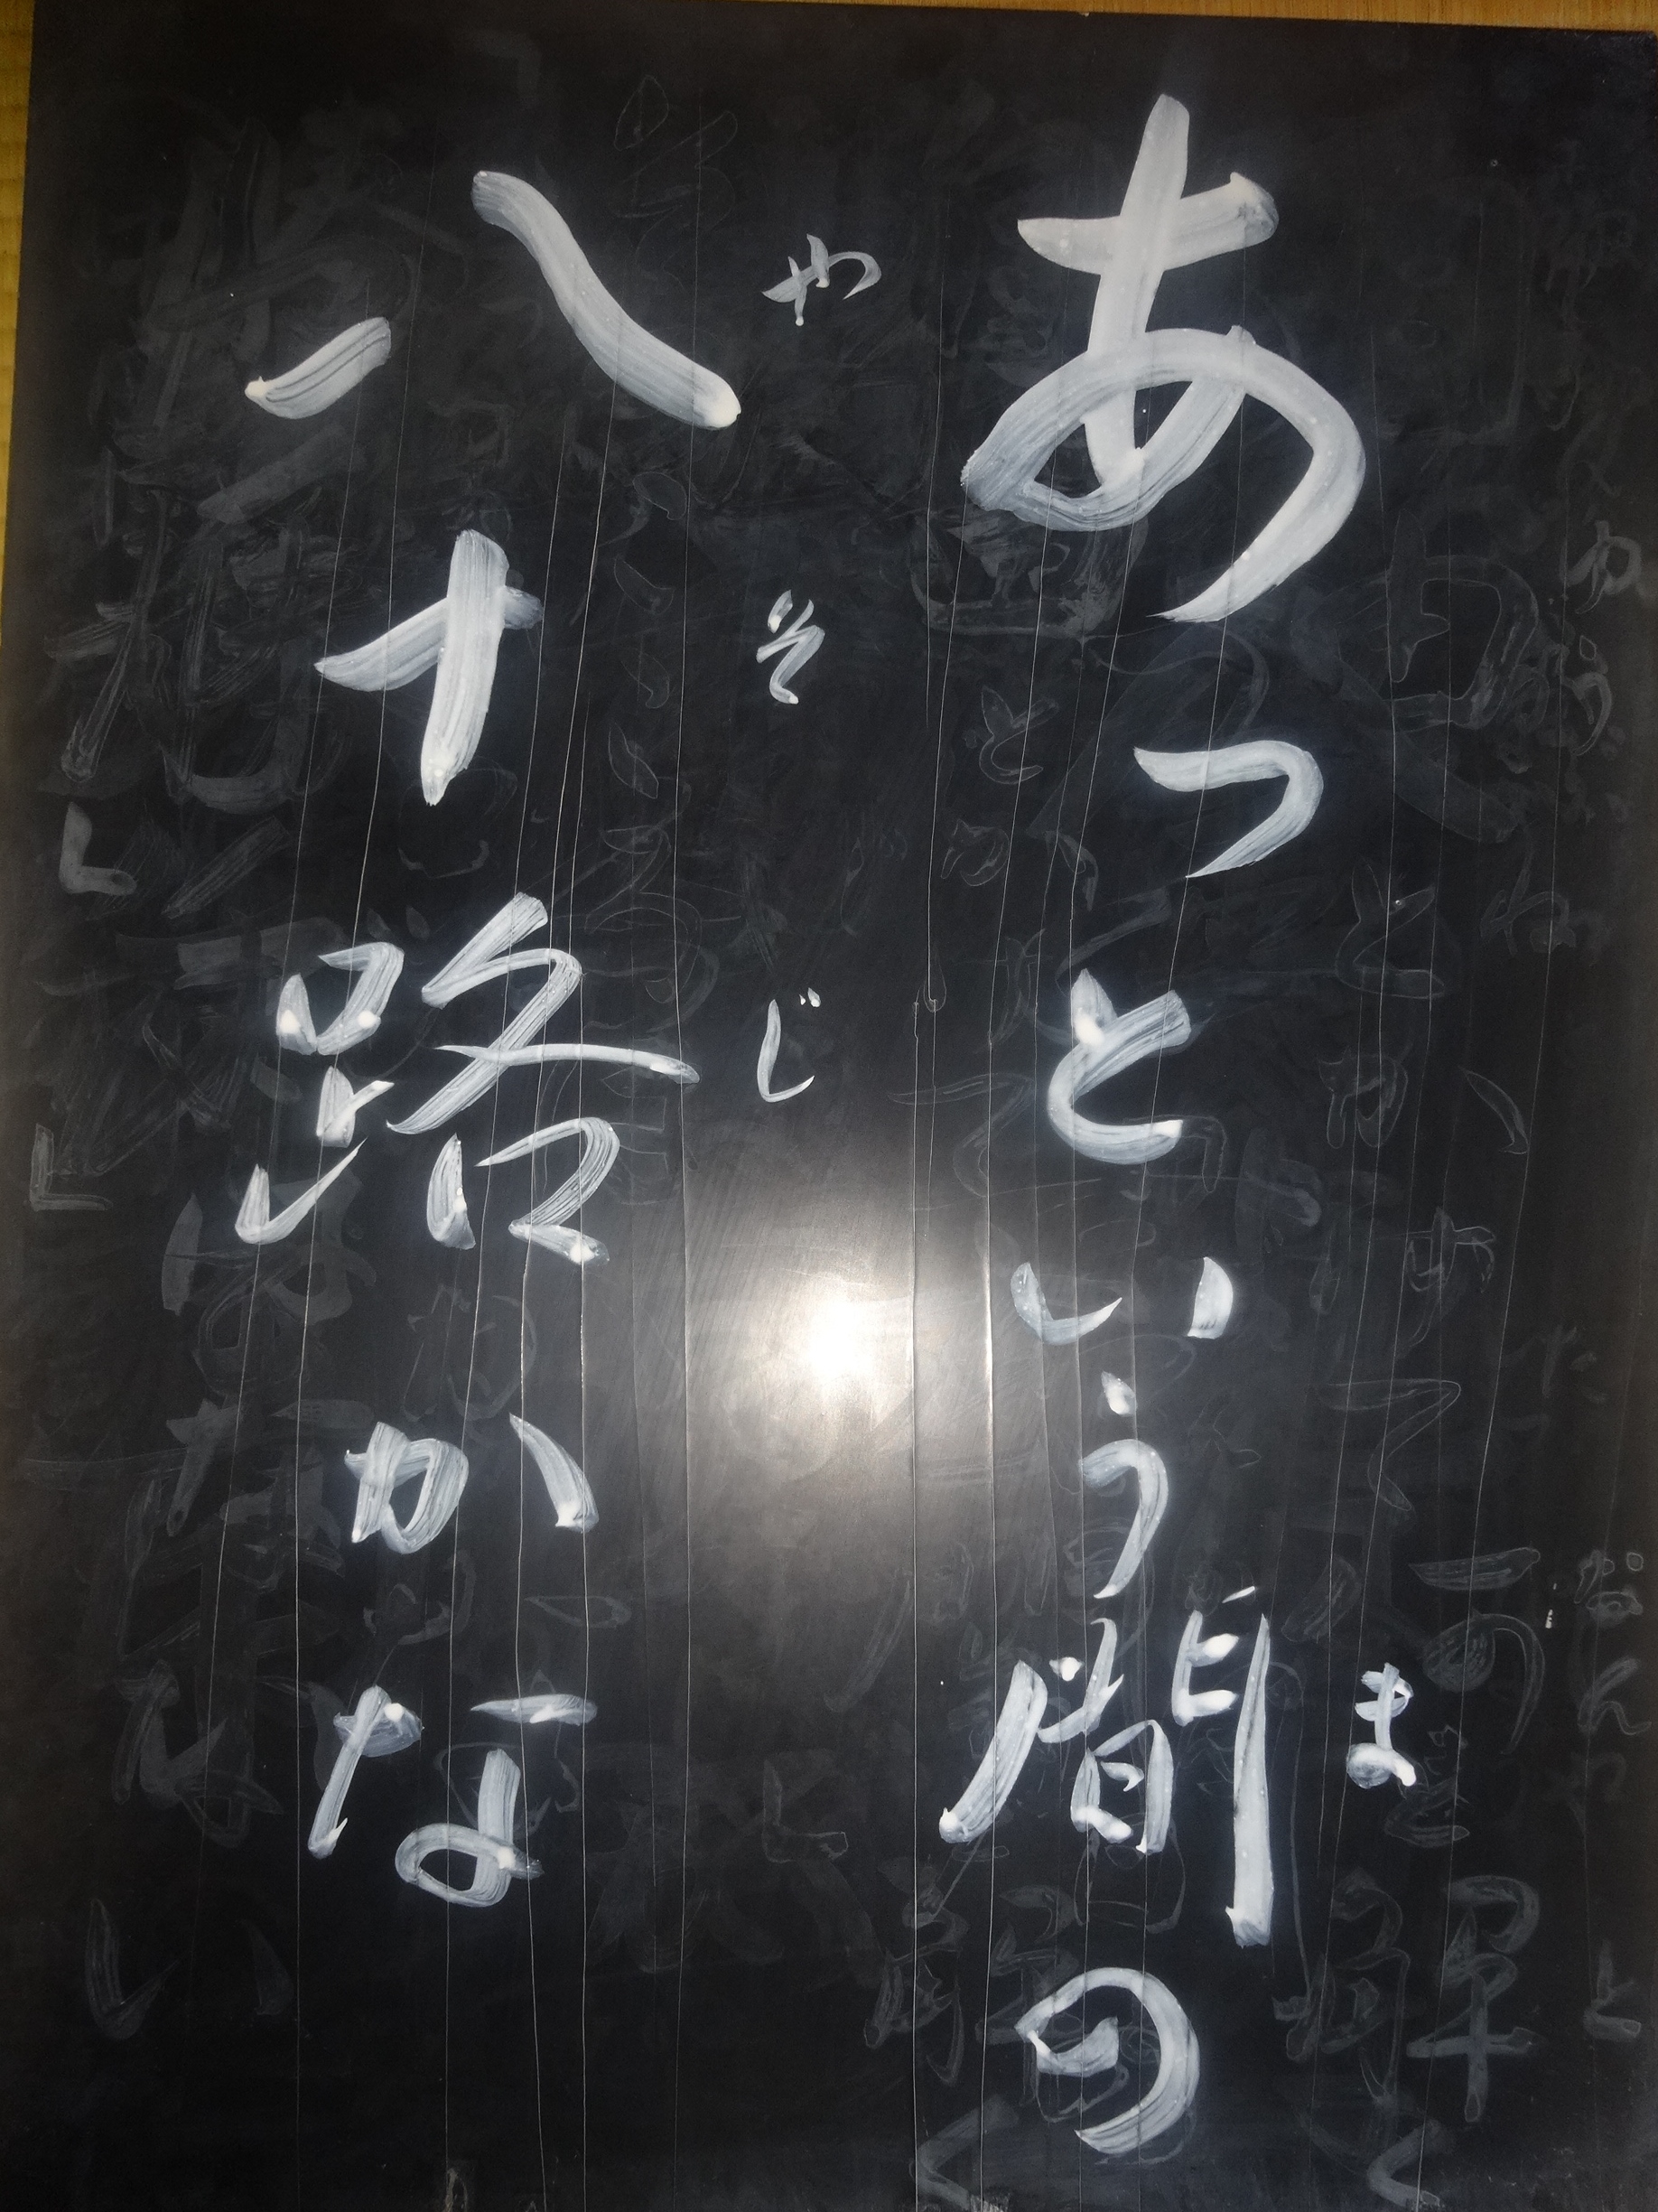 あっという間の
ま
八十路かな
やそじ